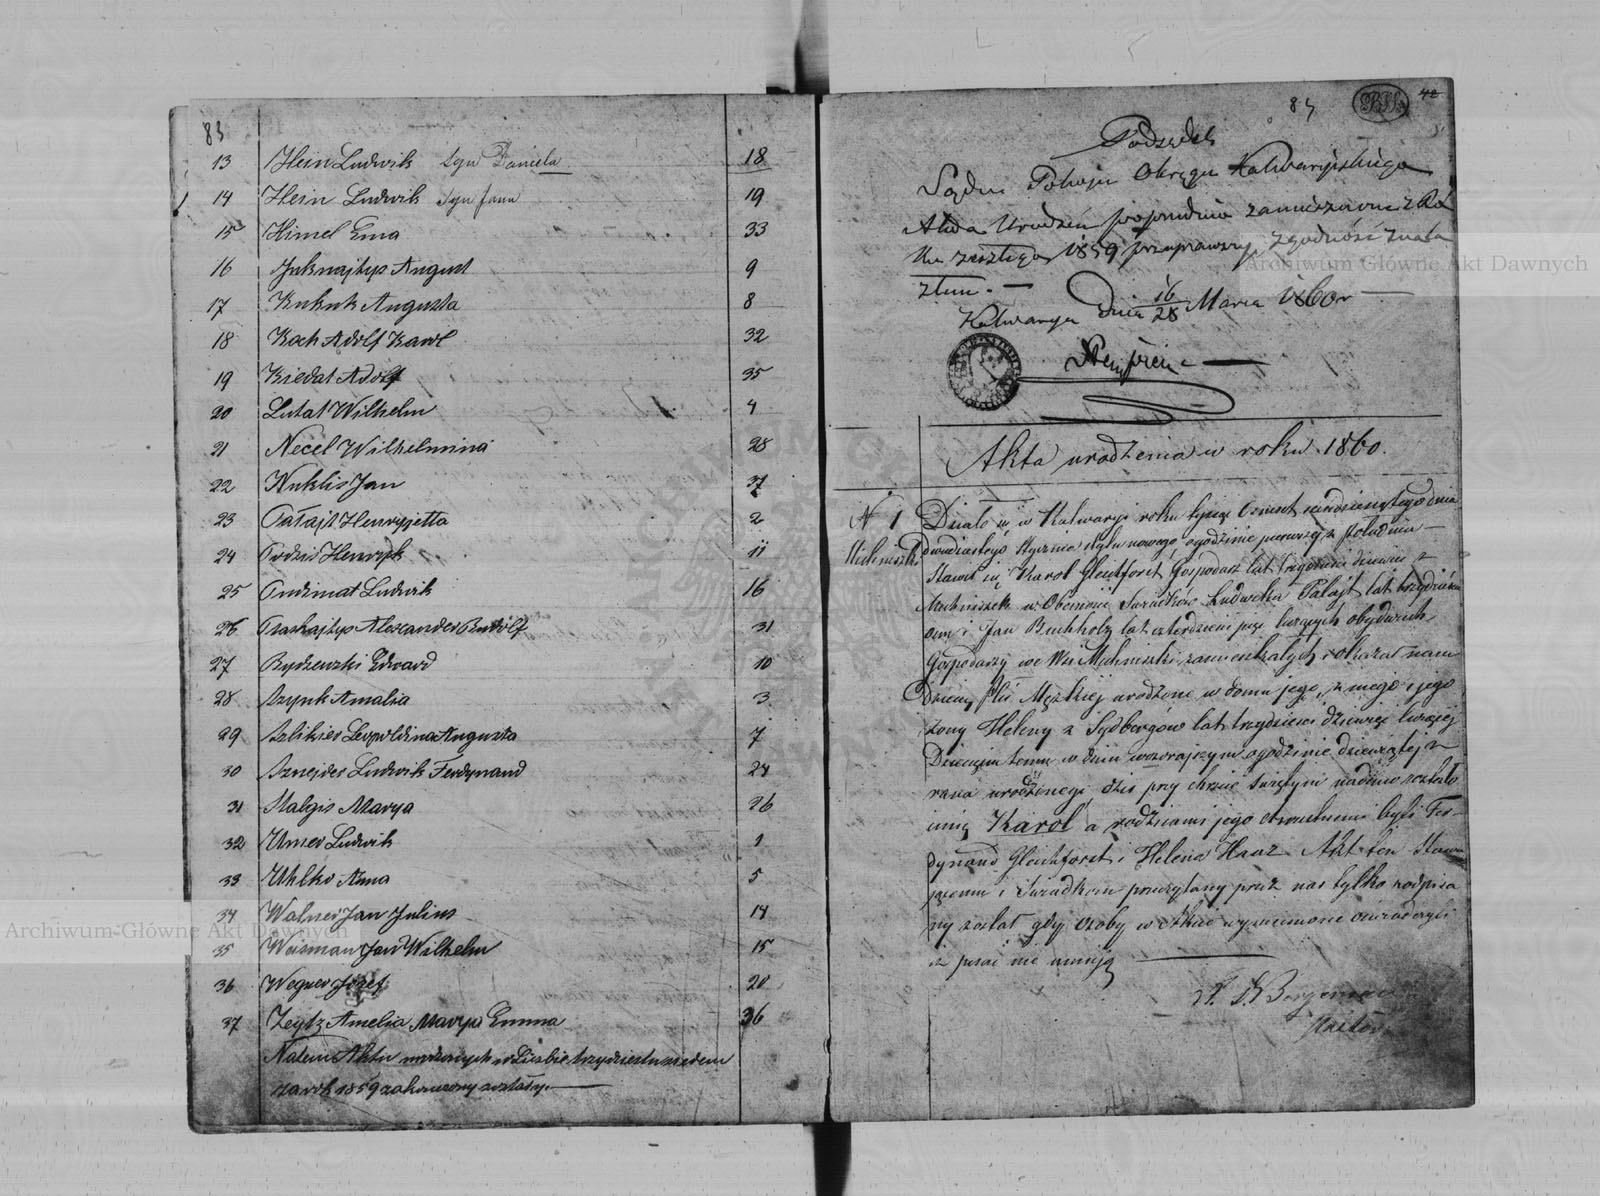 83
13 Hein Ludwik Syn Daniela 18
14 Hein Ludwik Syn Jana 19
15 Himel Ema 33
16 Juknajtys August 9
17 Kukuk Augusta 8
18 Koch Adolf Karol 32
19 Kiedat Adolf 35
20 Lutat Wilhelm 4
21 Necel Wilhelmina 28
22 Nuklis Jan 37
23 Pałajt Henryjetta 2
24 Henryk 11
25 Ludwik 16
26 Alexander Rudolf 31
27 Rydzewski Edward 10
28 Szynk Amalia 3
29 Szlikier Leopoldina Augusta 7
30 Sznejder Ludwik Ferdynand 24
31 Stalgis Marya 26
32 Urner Ludwik 1
33 Uhlko Anna 5
34 Walner Jan Julius 14
35 Weisman Jan Wilhelm 15
36 Wegner Józef 20
37 Zeytz Amelia Marya Emma 36
Natem Akta urodzonych w Liczbie trzydziestu siedem
za rok 1859 zakończony został
84 42
Podsędek
Sądu Pokoju Okręgu Kalwaryjskiego
Akta Urodzeń poprzednio zamieszczone z Ro
ku zeszłego 1859 przeprawszy zgodność znala
złem.
Kalwarya dnia 16/28 Marca 1860 r
Akta urodzenia w roku 1860.
N 1 Działo się w Kalwaryi roku tysiąc Ośmset sześdziesiątego dnia
Michniszki dwudziestego Stycznia stylu nowego o godzinie pierwszej z południa
Stawił się Karol Gleichforst Gospodarz lat trzydzieści dziewięć z
Michniszek w Obecności Świadków Ludwika Pałajt lat trzydzieści
osm i Jan Buchholz lat czterdzieści pięć liczących obydwóch
Gospodarzy we Wsi Michniszki zamieszkałych i okazał nam
Dziecię płci Męzkiej urodzone w domu jego, z niego i jego
żony Heleny z Sydbergów lat trzydzieści dziewięć liczącej
Dziecięciu temu w dniu wczorajszym o godzinie dziewiątej z
rana urodzonego dziś przy chrzcie świętym nadane zostało
imię Karol a rodzicami jego chrzestnemi byli Fer-
dynand Gleichforst i Helena Haaz Akt ten Stawa
jącemu i Świadkom przeczytany przez nas tylko podpisa
ny został gdyż osoby w Akcie wymienione oświadczyli
iż pisać nie umieją